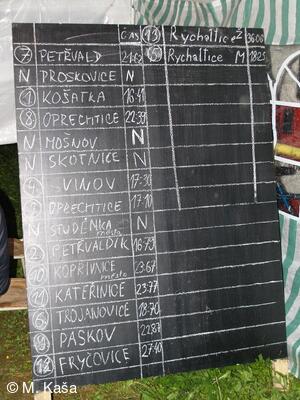 ČAS (13) Rychaltice Ž 36.08
(7) PETŘVALD 21.62 (5) Rychaltice M 18.25
N PROSKOVICE N
(1) KOŠATKA 16.41
(8) OPRECHTICE 22.39
N MOŠNOV N
N SKOTNICE N
(4) SVINOV 17.36
(3) OPRECHTICE 17.10
N STUDÉNKA město N
(2) PETŘVALDÍK 16.73
(10) KOPŘIVNICE město 23.67
(11) KATEŘINICE 23.77
(6) TROJANOVICE 18.70
(9) PASKOV 22.87
(12) FRYČOVICE 27.40
© M. Kaša